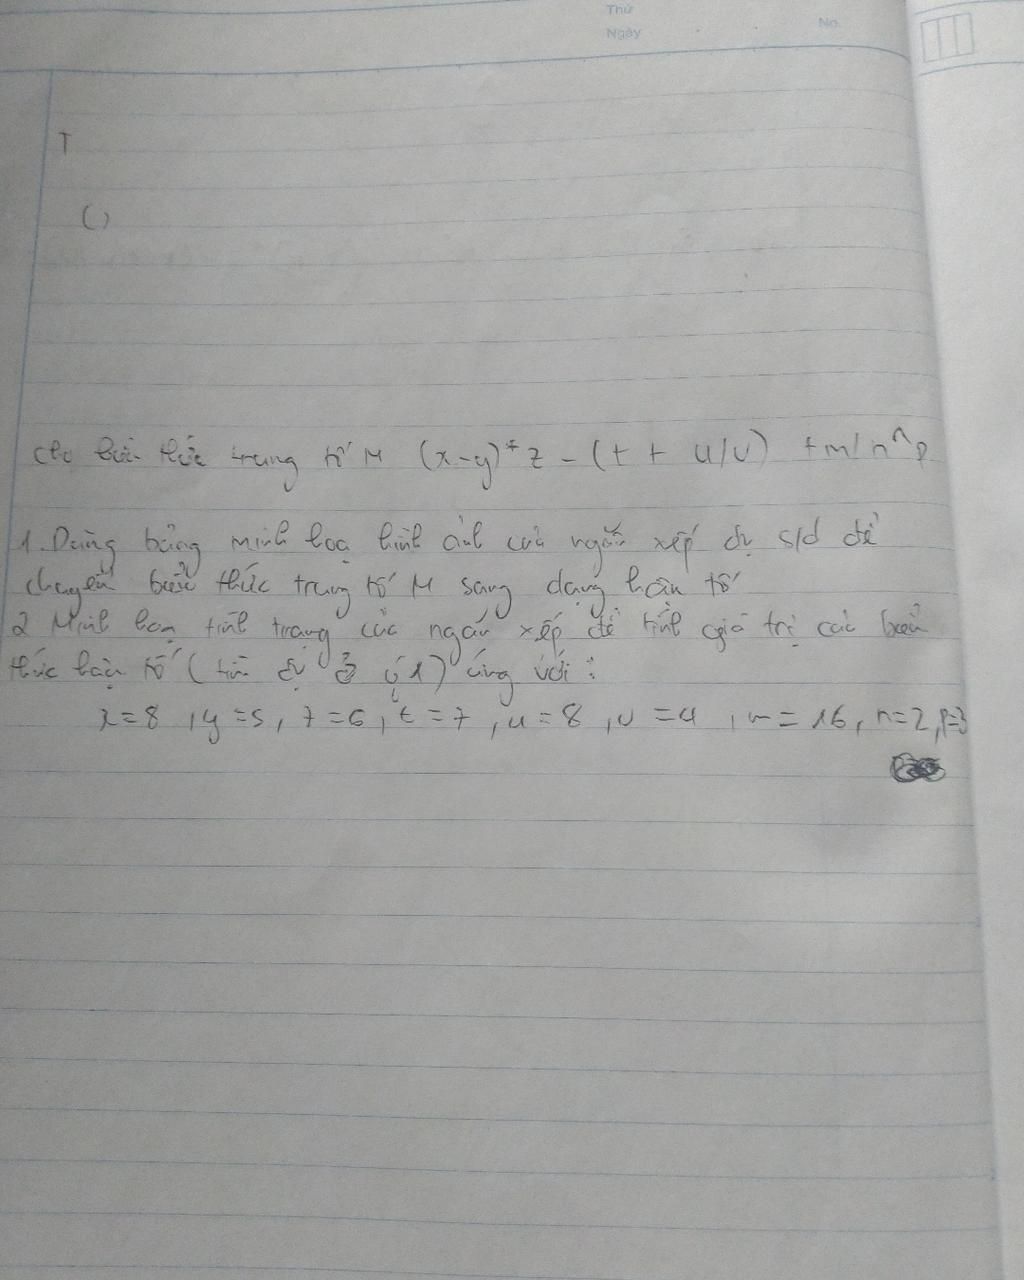 Thứ
Ngày
No.
T
()
cho biểu thức trung tố M (x-y)*z - (t + u/v) + m/n^p
1. Dùng bảng minh hoạ hình ảnh của ngăn xếp đc s/d để
chuyển biểu thức trung tố M sang dạng hậu tố
2 Minh hoạ tình trạng của ngăn xếp để tính giá trị của biểu
thức hậu tố (tìm đc ở ý 1) ứng với:
x=8, y=5, z=6, t=7, u=8, v=4, m=16, n=2, p=3